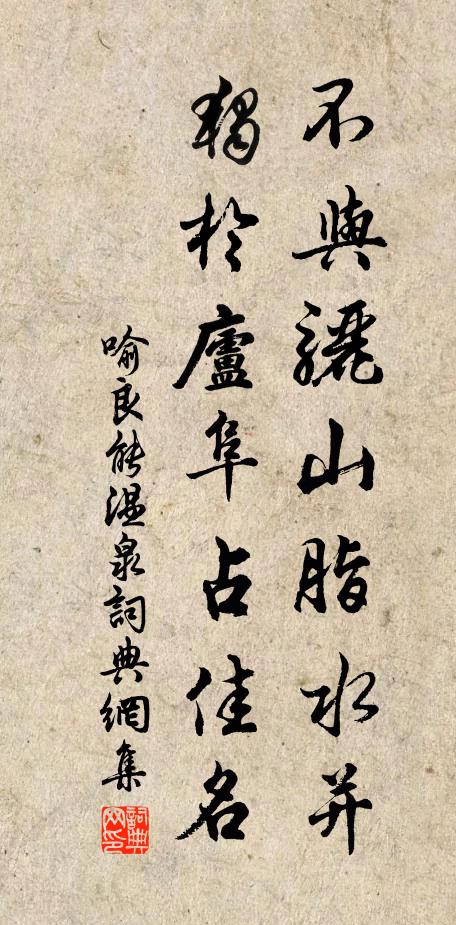 不與驪山脂水并
獨於廬阜占佳名
喻良能溫泉詞典網集
詞典網印